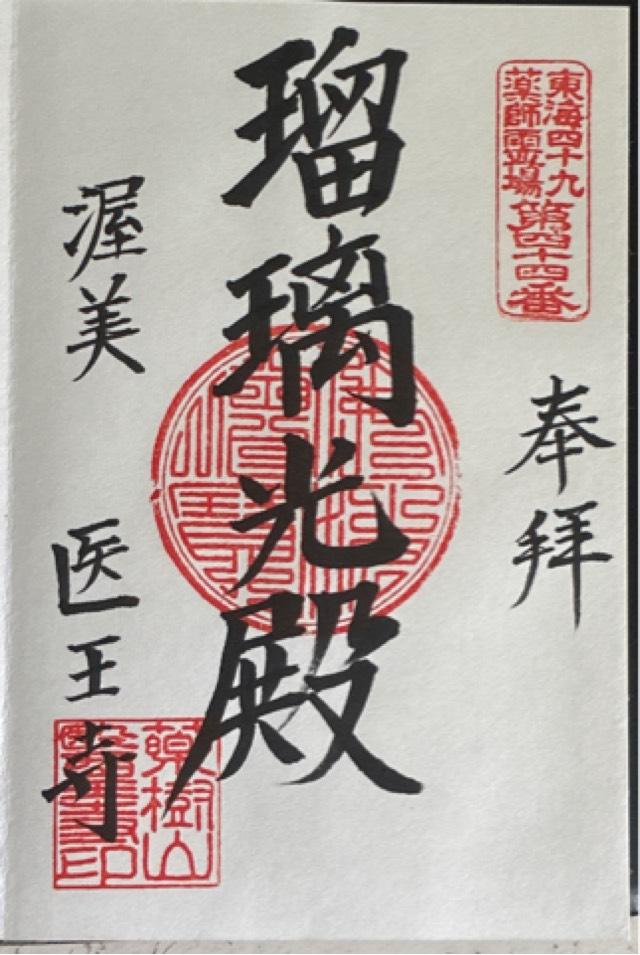 東海四十九
薬師霊場
第四十四番
奉拝
瑠璃光殿
渥美
医王寺
薬樹山
醫王寺印